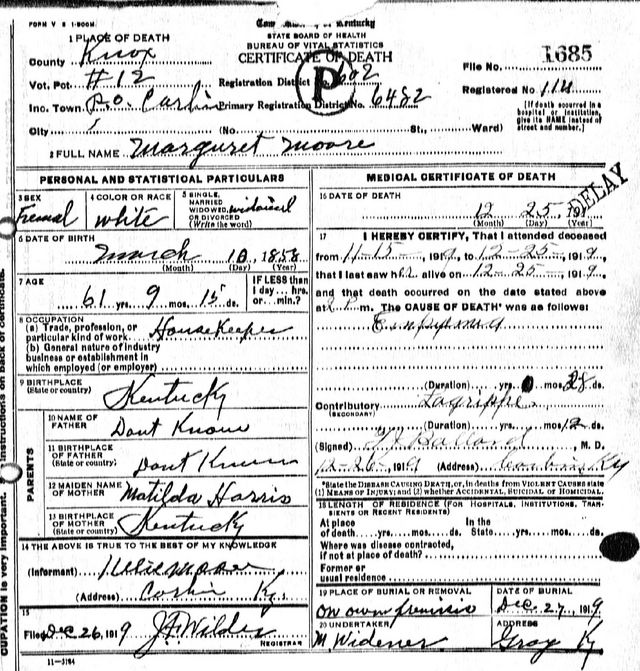 FORM V S 1-500M
Kentucky
STATE BOARD OF HEALTH
BUREAU OF VITAL STATISTICS
CERTIFICATE OF DEATH
1 PLACE OF DEATH
County Knox
File No. 1685
Vot. Pct #12
Registration District No. 602
Registered No. 114
P
Inc. Town P.O. Corbin Primary Registration District No. 6482
[If death occurred in a hospital or institution, give its NAME instead of street and number.]
City (No St., Ward)
2 FULL NAME Margaret Moore
PERSONAL AND STATISTICAL PARTICULARS
3 SEX Femal
4 COLOR OR RACE White
5 SINGLE, MARRIED WIDOWED, OR DIVORCED (Write the word) widowed
6 DATE OF BIRTH
March 10, 1858
(Month) (Day) (Year)
7 AGE
61 yrs. 9 mos. 15 ds.
IF LESS than 1 day... hrs. or min.?
8 OCCUPATION
(a) Trade, profession, or particular kind of work HouseKeeper
(b) General nature of industry business or establishment in which employed (or employer)
9 BIRTHPLACE (State or country) Kentucky
PARENTS
10 NAME OF FATHER Dont Know
11 BIRTHPLACE OF FATHER (State or country) Dont Know
12 MAIDEN NAME OF MOTHER Matilda Harris
13 BIRTHPLACE OF MOTHER (State or country) Kentucky
14 THE ABOVE IS TRUE TO THE BEST OF MY KNOWLEDGE
(Informant)
(Address) Corbin Ky.
15
Filed Dec 26, 1919 J.F. Wilder
REGISTRAR
11-3184
MEDICAL CERTIFICATE OF DEATH
DELAY
16 DATE OF DEATH
12 25, 191
(Month) (Day) (Year)
17 I HEREBY CERTIFY, That I attended deceased
from 11-15-, 1919, to 12-25-, 1919,
that I last saw her alive on 12-25-, 1919,
and that death occurred on the date stated above
at 2 P. m. The CAUSE OF DEATH* was as follows:
Empyema
(Duration) yrs. 0 mos. 28 ds.
Contributory (SECONDARY) Lagrippe
(Duration) yrs. mos. 12 ds.
(Signed) Ballard, M. D.
12-26-, 1919 (Address) Corbin Ky
*State the DISEASE CAUSING DEATH, or, in deaths from VIOLENT CAUSES state (1) MEANS OF INJURY; and (2) whether ACCIDENTAL, SUICIDAL or HOMICIDAL.
18 LENGTH OF RESIDENCE (FOR HOSPITALS, INSTITUTIONS, TRANSIENTS OR RECENT RESIDENTS)
At place of death yrs. mos. ds. In the State yrs. mos. ds.
Where was disease contracted, if not at place of death?
Former or usual residence
19 PLACE OF BURIAL OR REMOVAL On own premisis
DATE OF BURIAL Dec. 27, 1919
20 UNDERTAKER M Widener
ADDRESS Gray Ky
CUPATION is very important. Instructions on back of certificate.